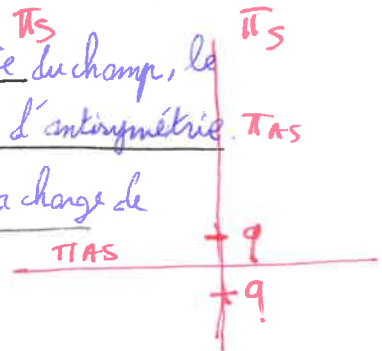 πs πs
e du champ, le
d'antisymétrie. πAS
a charge de
πAS q
q